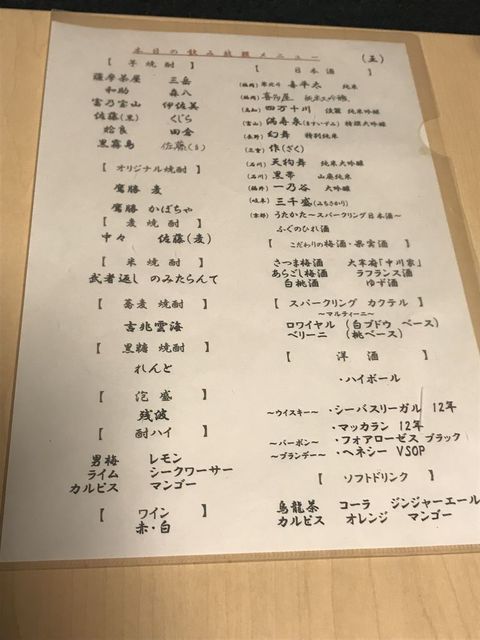 本日の飲み放題メニュー
(五)
【 芋焼酎 】
薩摩茶屋 三岳
和助 森八
富乃宝山 伊佐美
佐藤(黒) くじら
田倉
黒霧島
【 オリジナル焼酎 】
鷹勝 麦
鷹勝 かぼちゃ
【 麦焼酎 】
中々 佐藤(麦)
【 米焼酎 】
武者返し のみたらんて
【 蕎麦焼酎 】
吉兆雲海
【 黒糖焼酎 】
れんと
【 泡盛 】
残波
【 酎ハイ 】
男梅 レモン
ライム シークワーサー
カルピス マンゴー
【 ワイン 】
赤・白
【 日本酒 】
喜平太 純米
(高知) 四万十川 純米吟醸
(富山) 満寿泉(ますいずみ) 特撰大吟醸
(長野) 幻舞 特別純米
(三重) 作(ざく)
(石川) 天狗舞 純米大吟醸
(石川) 黒帯 山廃純米
(福井) 一乃谷 大吟醸
(岐阜) 三千盛(みちさかり)
(京都) うたかた~スパークリング日本酒~
ふぐのひれ酒
【 こだわりの梅酒・果実酒 】
さつま梅酒 大宰府「中川家」
あらごし梅酒 ラフランス酒
白桃酒 ゆず酒
【 スパークリング カクテル 】
~マルティーニ~
ロワイヤル (白ブドウ ベース)
ベリーニ (桃ベース)
【 洋酒 】
・ハイボール
~ウイスキー~ ・シーバスリーガル 12年
・マッカラン 12年
~バーボン~ ・フォアローゼス ブラック
~ブランデー~ ・ヘネシー VSOP
【 ソフトドリンク 】
烏龍茶 コーラ ジンジャーエール
カルピス オレンジ マンゴー